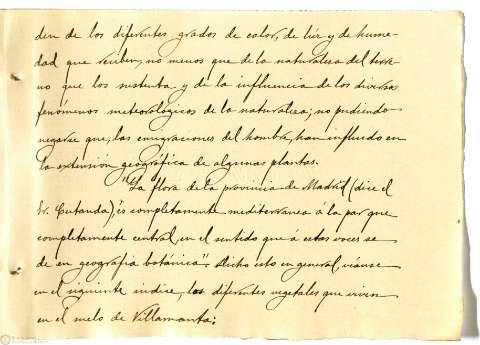 den de los diferentes grados de color, de luz y de hume-
dad que reciben, no menos que de la naturaleza del terre-
no que los sustenta y de la influencia de los diversos
fenómenos meteorológicos de la naturaleza; no pudiendo
negarse que, las emigraciones del hombre, han influido en
la extensión geográfica de algunas plantas.
"La flora de la provincia de Madrid (dice el
Sr. Cutanda), "es completamente mediterranea á la par que
completamente central, en el sentido que á estas voces se
dé en geografia botánica". Dicho esto en general, véanse
en el siguiente indice, los diferentes vegetales que viven
en el suelo de Villamanta: